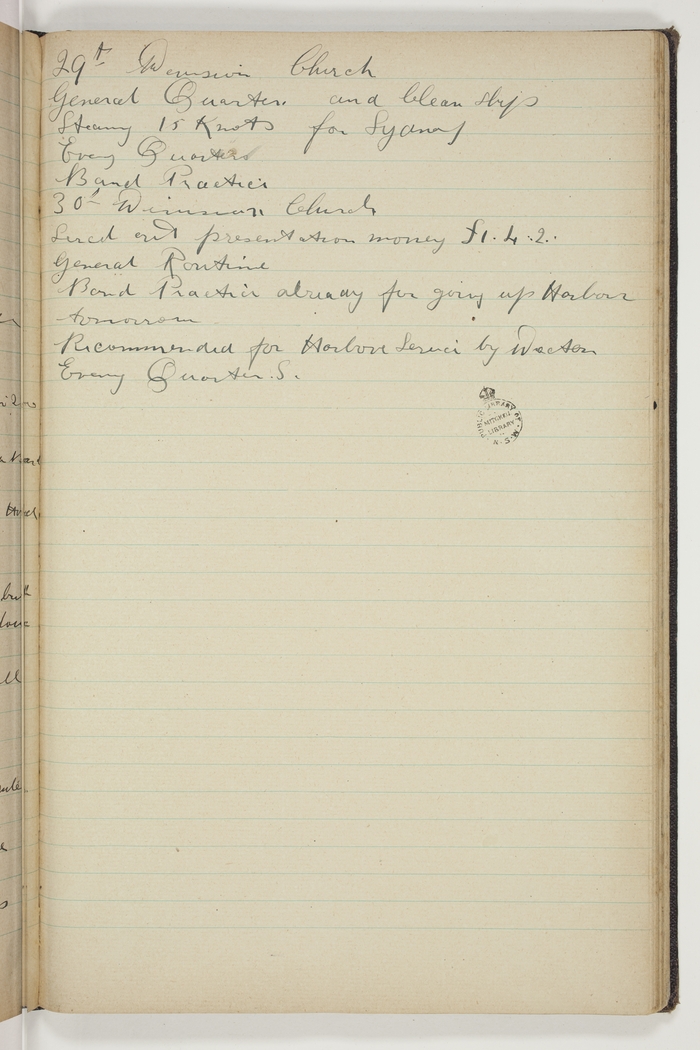 29th Division Church
General Quarters and Clean ship
Steamg 15 Knots for Sydney
Eveng Quarters
Band Practice
30th Division Church
out presentation money £1.4.2.
General Routine
Band Practice already for going up Harbour
tomorrow
Recommended for Harbour Service by Doctor
Eveng Quarters.
PUBLIC LIBRARY OF N.S.W
MITCHELL
LIBRARY